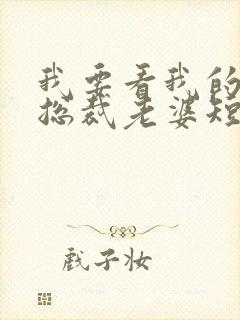 我要看我的
总裁老婆短
戏子妆